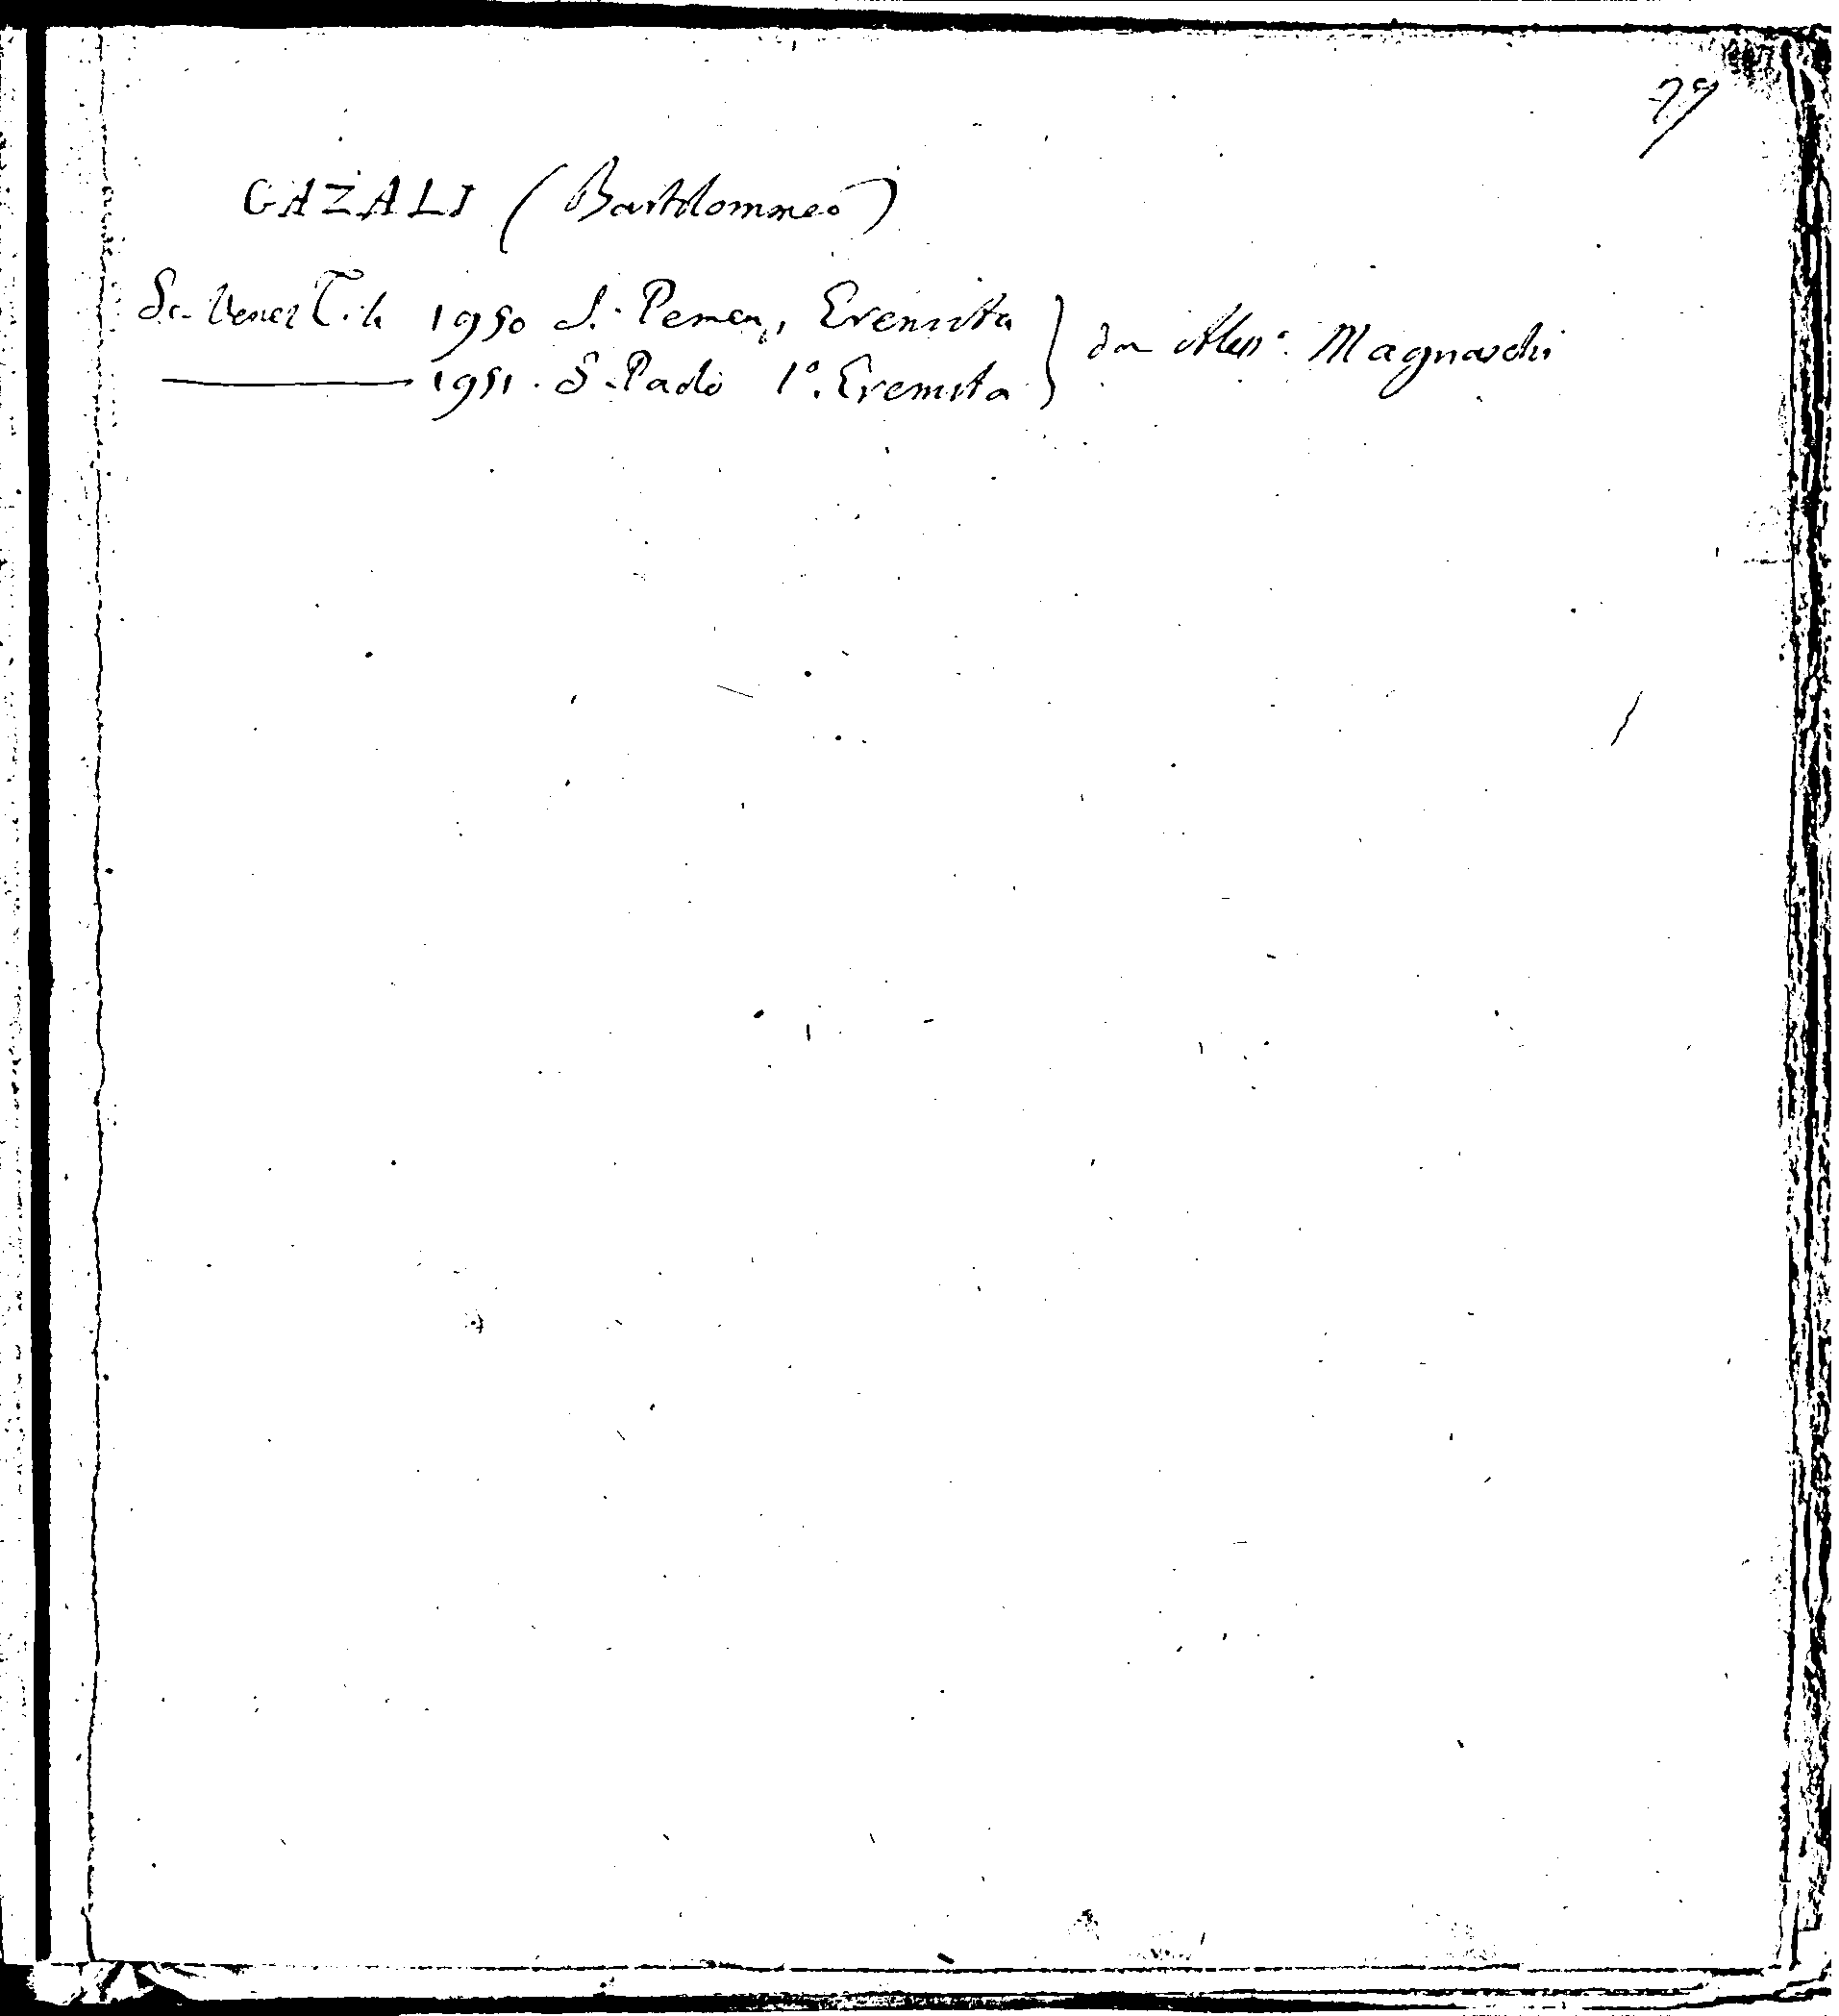 79
GAZALI (Bartolommeo)
Sc. Venez T. 4 1950 S. Pemen, Eremita
1951. S. Paolo 1º. Eremita } da Aless. Magnaschi